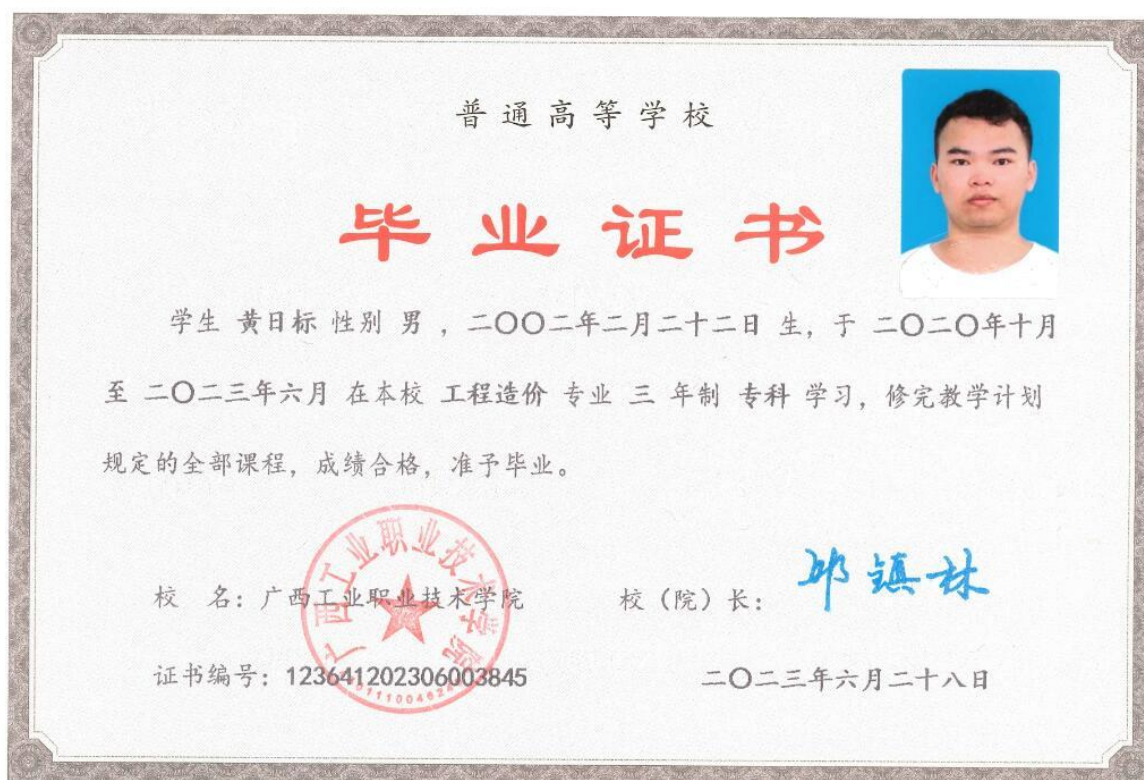 普通高等学校
毕业证书
学生 黄日标 性别 男 ，二〇〇二年二月二十二日 生，于 二〇二〇年十月
至 二〇二三年六月 在本校 工程造价 专业 三 年制 专科 学习，修完教学计划
规定的全部课程，成绩合格，准予毕业。
广西工业职业技术学院
校 名：广西工业职业技术学院
校（院）长：
证书编号：123641202306003845
二〇二三年六月二十八日